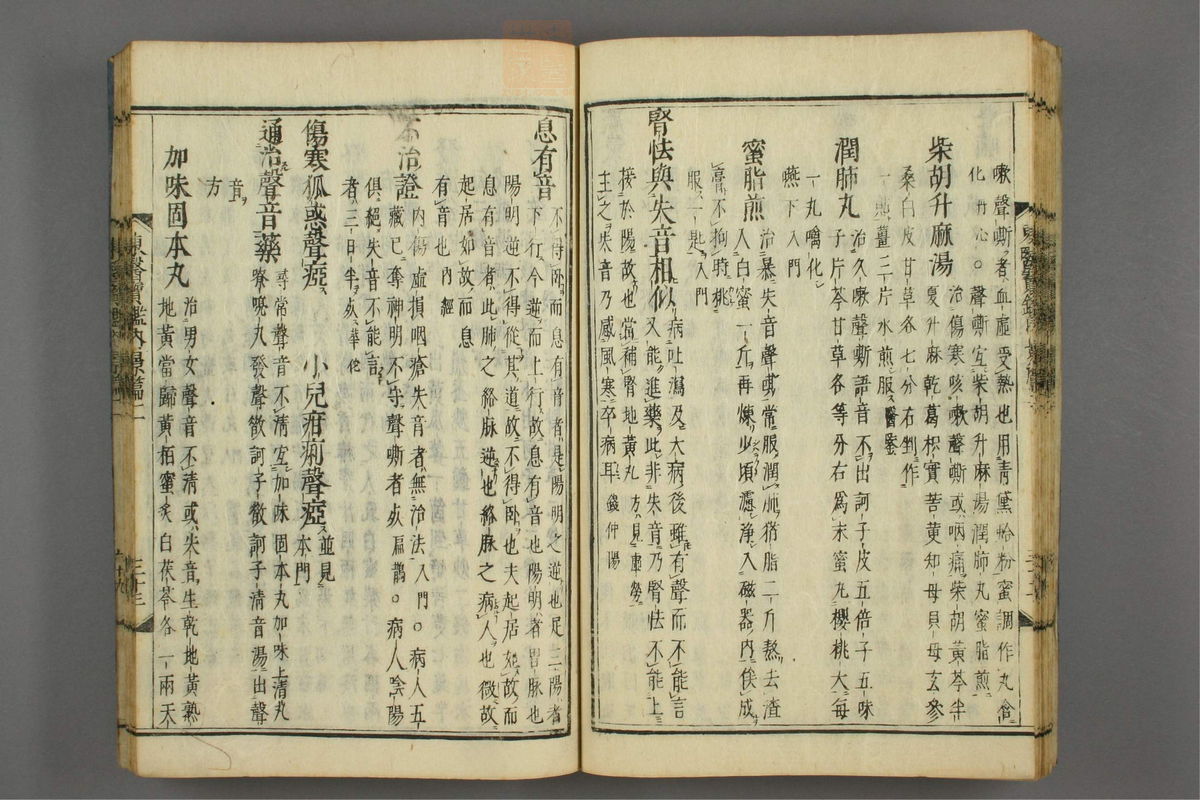 嗽聲嘶者血虛受熱也用靑黛蛤粉蜜調作丸含
化丹心○聲嘶宜柴胡升麻湯潤肺丸蜜脂煎
柴胡升麻湯 治傷寒咳嗽聲嘶或咽痛柴胡黃芩半
夏升麻乾葛枳實苦黃知母貝母玄參
桑白皮甘草各七分右剉作
一貼薑三片水煎服醫鑒
潤肺丸 治久嗽聲嘶語音不出訶子皮五倍子五味
子片芩甘草各等分右爲末蜜丸櫻桃大每
一丸噙化
嚥下入門
蜜脂煎 治暴失音聲嘶常服潤肺猪脂二斤熬去渣
入白蜜一斤再煉少頃濾淨入磁器內俟成
膏不拘時桃
服一匙入門
腎怯與失音相似 病吐瀉及大病後雖有聲而不能言
又能進藥此非失音乃腎怯不能上
接於陽故也當補腎地黃丸方見虛勞
主之失音乃感風寒卒病耳錢仲陽
息有音 不得臥而息有音者是陽明之逆也足三陽者
下行今逆而上行故息有音也陽明者胃脉也
陽明逆不得從其道故不得臥也夫起居如故而
息有音者此肺之絡脉逆也絡脉之病人也微故
起居如故而息
有音也內經
不治證 內傷虛損咽瘡失音者無治法入門○病人五
藏已奪神明不守聲嘶者死扁鵲○病人陰陽
俱絕失音不能言
者三日半死華佗
傷寒狐惑聲瘂 小兒疳痢聲瘂並見本門
通治聲音藥 尋常聲音不淸宜加味固本丸加味上淸丸
嘹喨丸發聲散訶子散訶子淸音湯出聲
音
方
加味固本丸 治男女聲音不淸或失音生乾地黃熟
地黃當歸黃栢蜜灸白茯苓各一兩天
東醫寶鑑內景篇二
三十三